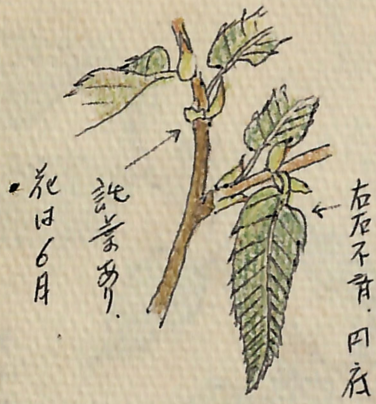 左右不斉.円底
託葉あり.
・花は6月